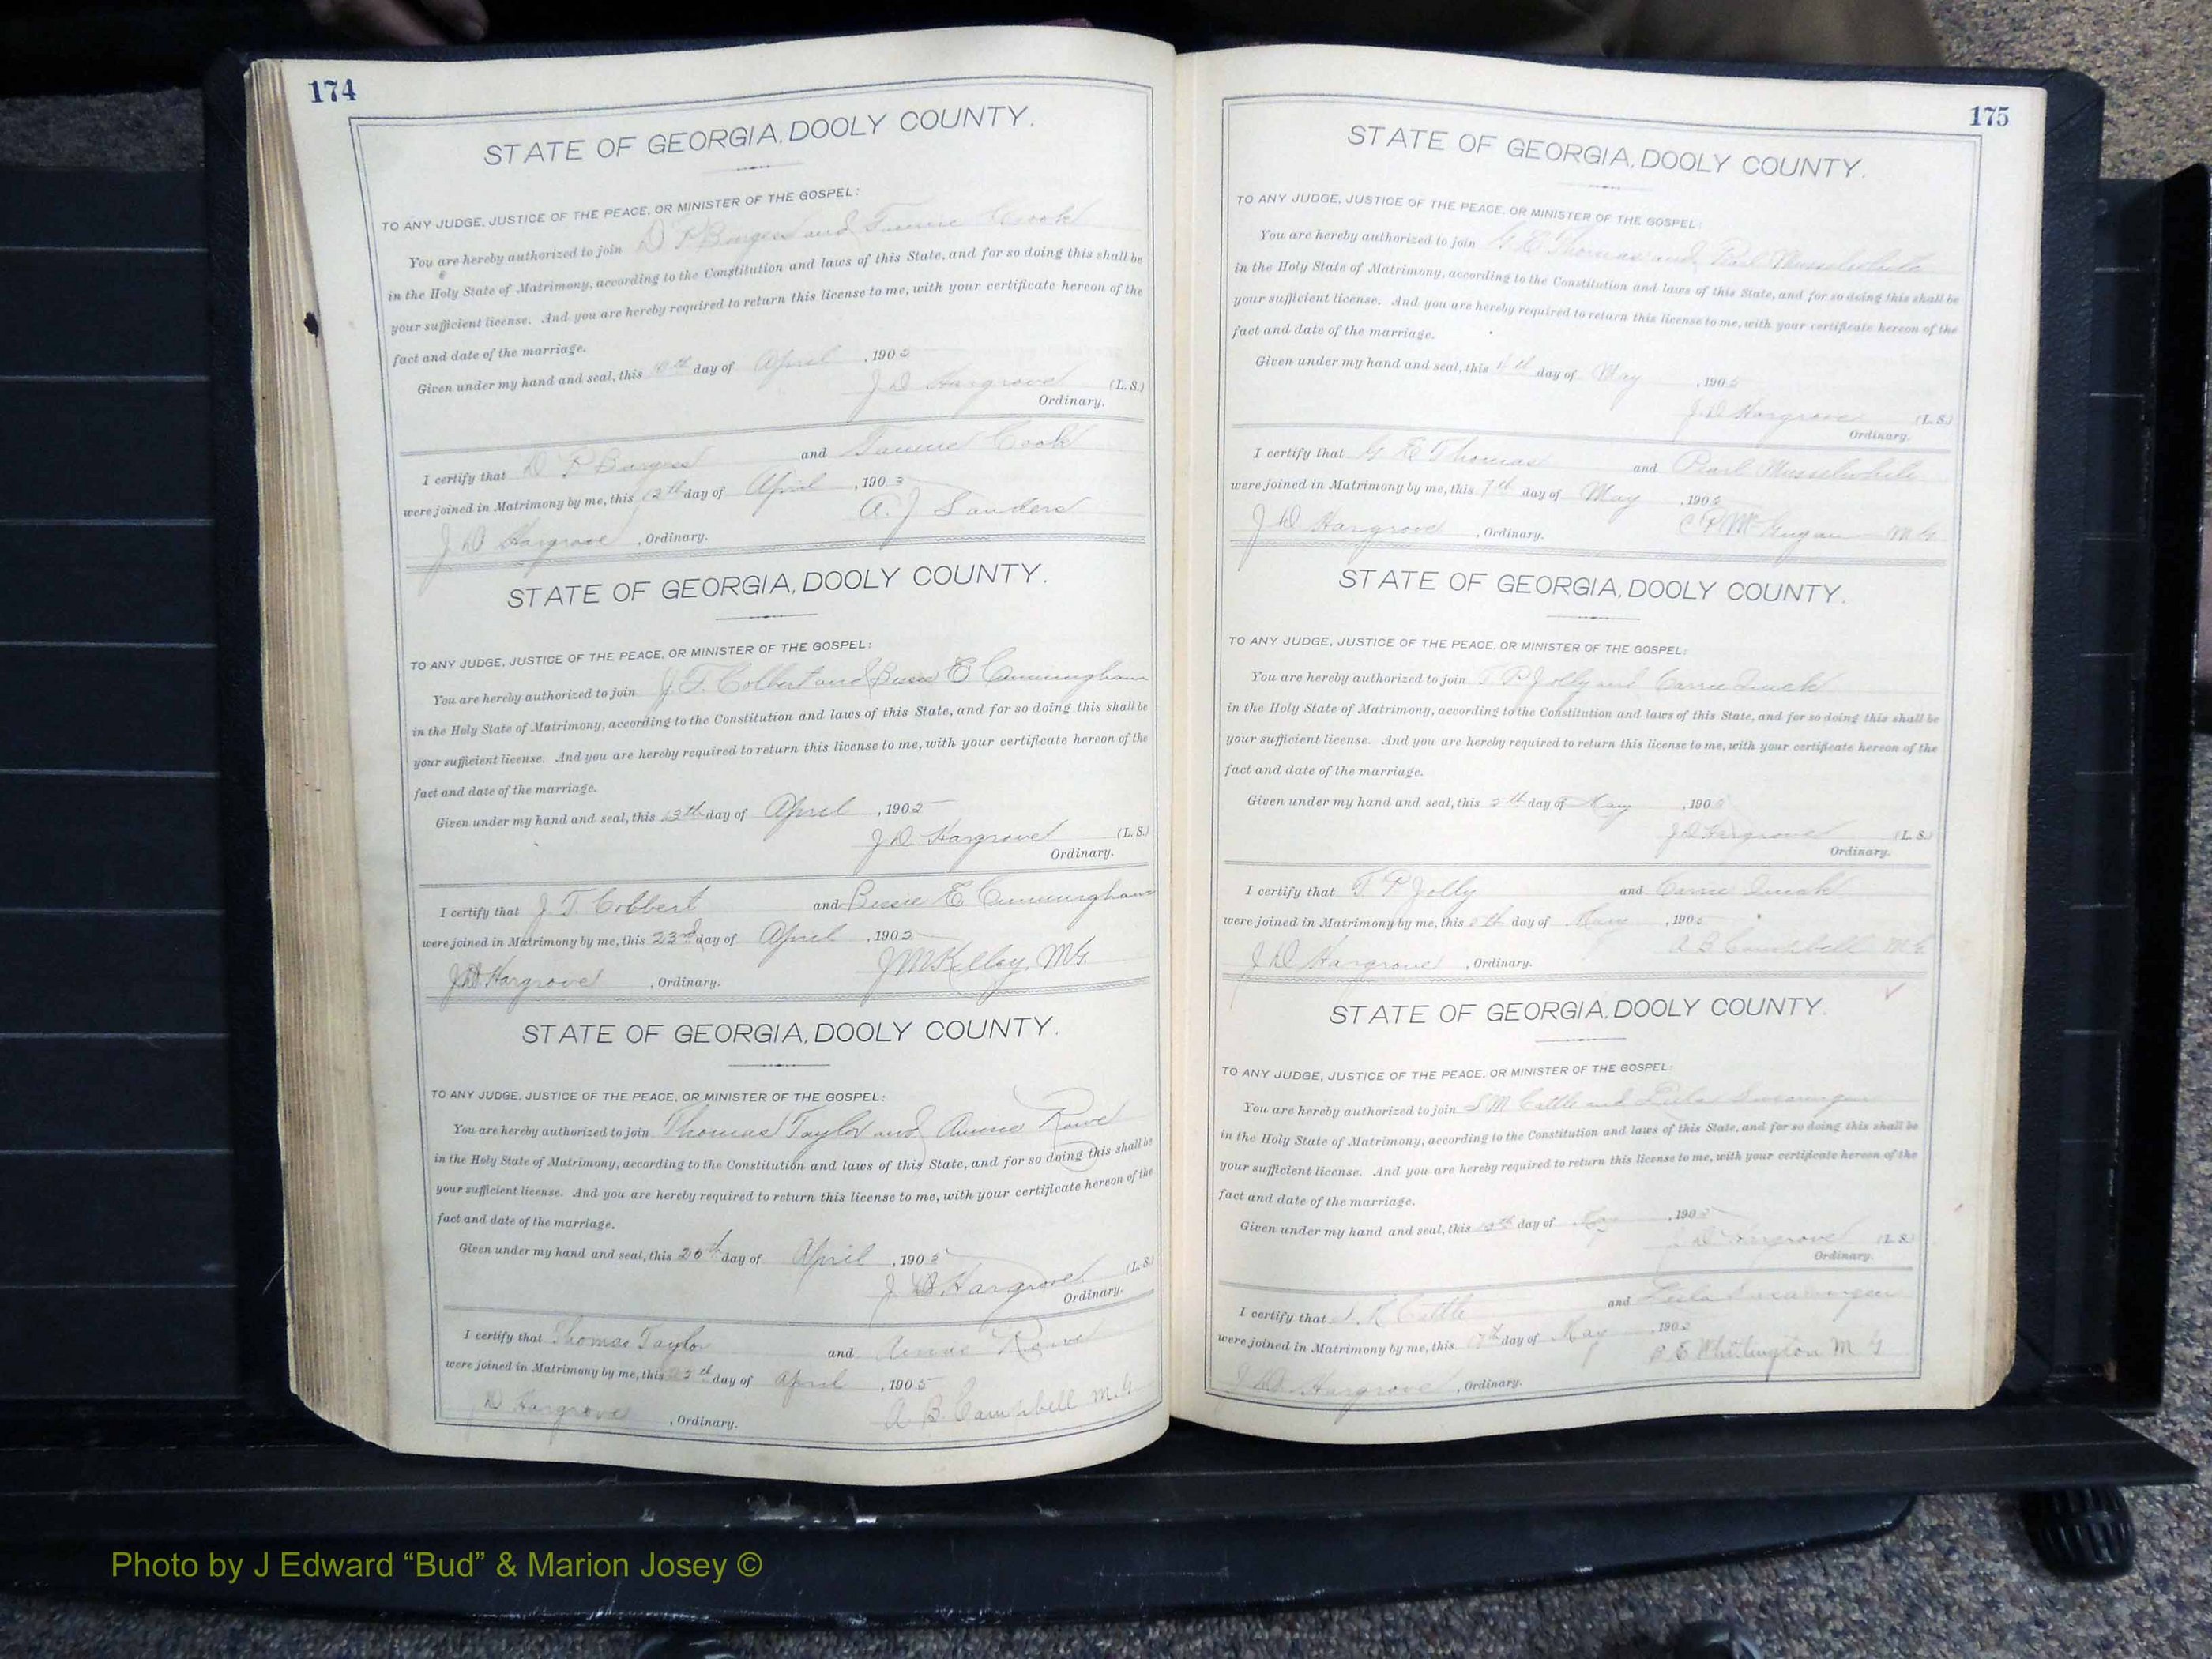 174
STATE OF GEORGIA, DOOLY COUNTY.
TO ANY JUDGE, JUSTICE OF THE PEACE, OR MINISTER OF THE GOSPEL:
You are hereby authorized to join D P Burgess and Cook
in the Holy State of Matrimony, according to the Constitution and laws of this State, and for so doing this shall be
your sufficient license. And you are hereby required to return this license to me, with your certificate hereon of the
fact and date of the marriage.
Given under my hand and seal, this day of April , 190
J D Hargrove (L. S.)
Ordinary.
I certify that D P Burgess and Cook
were joined in Matrimony by me, this 12th day of April , 190
A. J Sanders
J D Hargrove , Ordinary.
STATE OF GEORGIA, DOOLY COUNTY.
TO ANY JUDGE, JUSTICE OF THE PEACE, OR MINISTER OF THE GOSPEL:
You are hereby authorized to join J. T. Colbert and Bessie E Cunningham
in the Holy State of Matrimony, according to the Constitution and laws of this State, and for so doing this shall be
your sufficient license. And you are hereby required to return this license to me, with your certificate hereon of the
fact and date of the marriage.
Given under my hand and seal, this 13th day of April , 1905
J D Hargrove (L. S.)
Ordinary.
I certify that J. T. Colbert and Bessie E Cunningham
were joined in Matrimony by me, this 23rd day of April , 1905
J M Kelley, M.G.
J D Hargrove , Ordinary.
STATE OF GEORGIA, DOOLY COUNTY.
TO ANY JUDGE, JUSTICE OF THE PEACE, OR MINISTER OF THE GOSPEL:
You are hereby authorized to join Thomas Taylor and Annie Rowe
in the Holy State of Matrimony, according to the Constitution and laws of this State, and for so doing this shall be
your sufficient license. And you are hereby required to return this license to me, with your certificate hereon of the
fact and date of the marriage.
Given under my hand and seal, this 20th day of April , 1905
J D. Hargrove (L. S.)
Ordinary.
I certify that Thomas Taylor and Annie Rowe
were joined in Matrimony by me, this day of April , 1905
A. B. Campbell M.G.
J D Hargrove , Ordinary.
175
STATE OF GEORGIA, DOOLY COUNTY.
TO ANY JUDGE, JUSTICE OF THE PEACE, OR MINISTER OF THE GOSPEL:
You are hereby authorized to join G E Thomas and Pearl Musselwhite
in the Holy State of Matrimony, according to the Constitution and laws of this State, and for so doing this shall be
your sufficient license. And you are hereby required to return this license to me, with your certificate hereon of the
fact and date of the marriage.
Given under my hand and seal, this day of May , 1905
J. D Hargrove (L. S.)
Ordinary.
I certify that G E Thomas and Pearl Musselwhite
were joined in Matrimony by me, this 7th day of May , 1905
C P M M G
J D Hargrove , Ordinary.
STATE OF GEORGIA, DOOLY COUNTY.
TO ANY JUDGE, JUSTICE OF THE PEACE, OR MINISTER OF THE GOSPEL:
You are hereby authorized to join T P Jolly and Carrie
in the Holy State of Matrimony, according to the Constitution and laws of this State, and for so doing this shall be
your sufficient license. And you are hereby required to return this license to me, with your certificate hereon of the
fact and date of the marriage.
Given under my hand and seal, this 5th day of May , 190
J D Hargrove (L. S.)
Ordinary.
I certify that T P Jolly and Carrie
were joined in Matrimony by me, this day of May , 1905
A B Campbell M G
J D Hargrove , Ordinary.
STATE OF GEORGIA, DOOLY COUNTY.
TO ANY JUDGE, JUSTICE OF THE PEACE, OR MINISTER OF THE GOSPEL:
You are hereby authorized to join and Lula Swearingen
in the Holy State of Matrimony, according to the Constitution and laws of this State, and for so doing this shall be
your sufficient license. And you are hereby required to return this license to me, with your certificate hereon of the
fact and date of the marriage.
Given under my hand and seal, this day of May , 1905
J D Hargrove (L. S.)
Ordinary.
I certify that and Lula Swearingen
were joined in Matrimony by me, this day of May , 190
B E Whitington M G
J D Hargrove , Ordinary.
Photo by J Edward “Bud” & Marion Josey ©